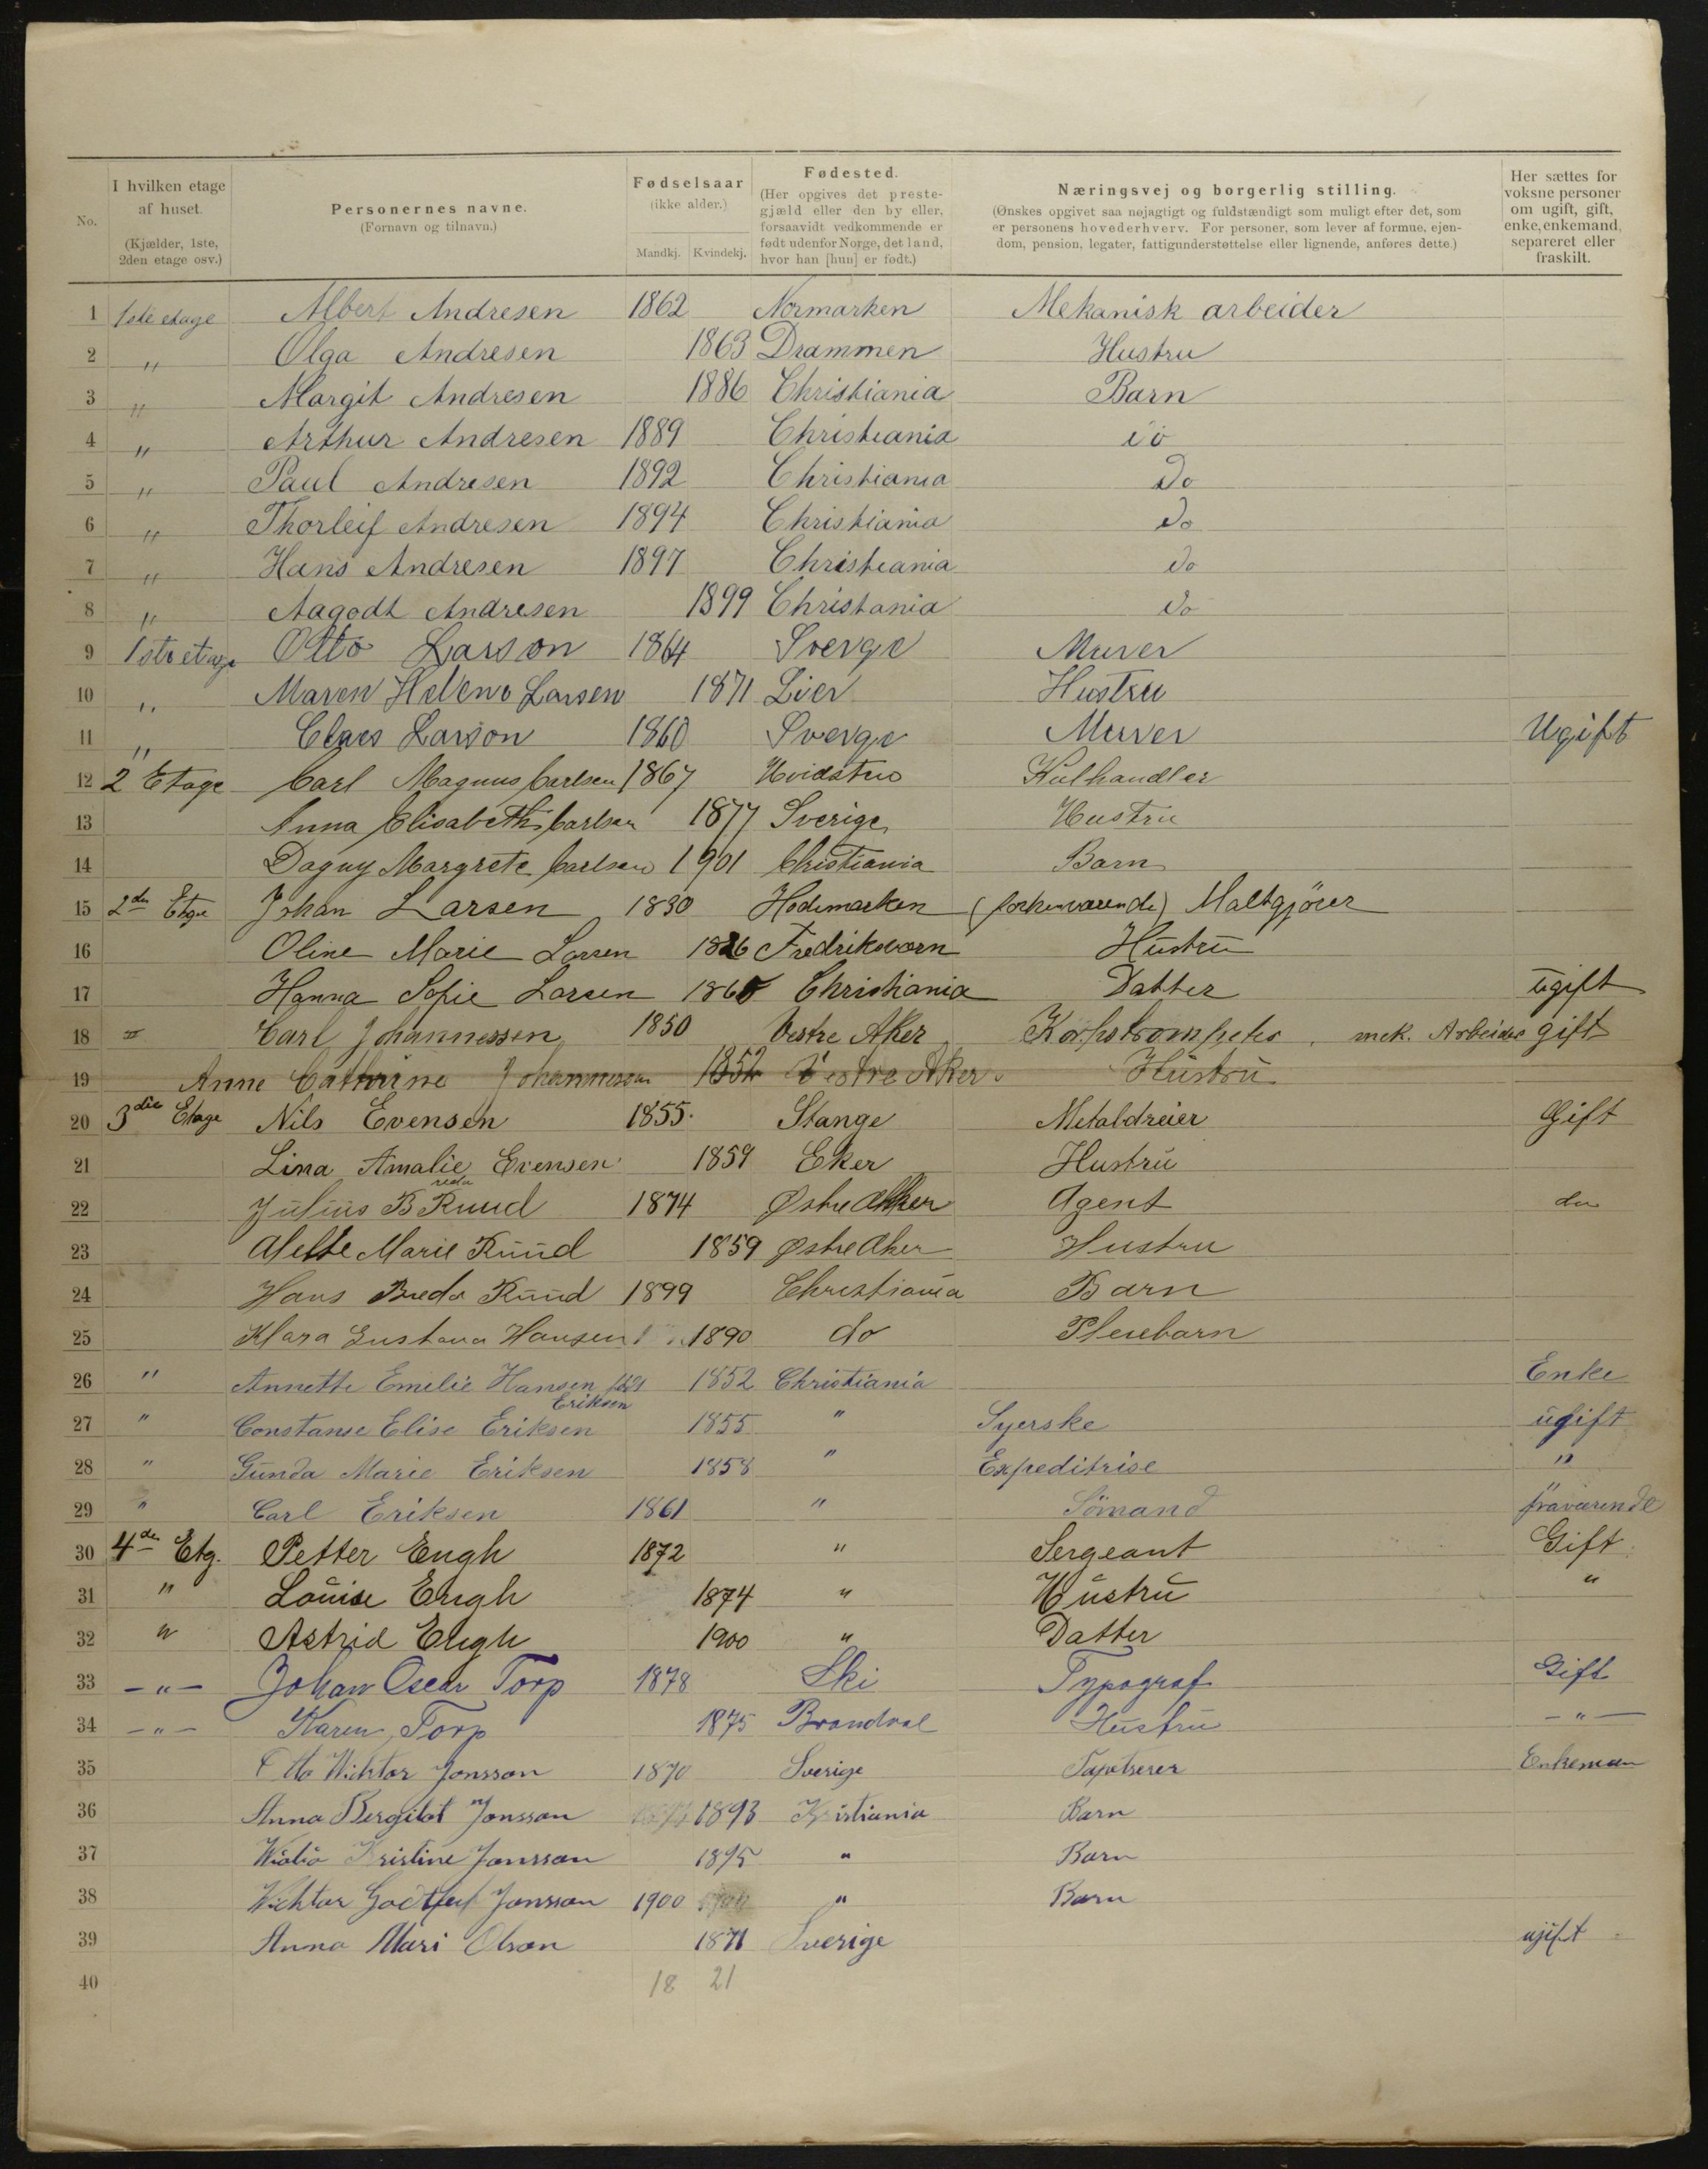 No.
I hvilken etage af huset. (Kjælder, 1ste, 2den etage osv.)
Personernes navne. (Fornavn og tilnavn.)
Fødselsaar (ikke alder.) Mandkj. Kvindekj.
Fødested. (Her opgives det prestegjæld eller den by eller, forsaavidt vedkommende er født udenfor Norge, det land, hvor han [hun] er født.)
Næringsvej og borgerlig stilling. (Ønskes opgivet saa nøjagtigt og fuldstændigt som muligt efter det, som er personens hovederhverv. For personer, som lever af formue, ejendom, pension, legater, fattigunderstøttelse eller lignende, anføres dette.)
Her sættes for voksne personer om ugift, gift, enke, enkemand, separeret eller fraskilt.
1 1ste etage Albert Andresen 1862 Normarken Mekanisk arbeider
2 " Olga Andresen 1863 Drammen Hustru
3 " Margit Andresen 1886 Christiania Barn
4 " Arthur Andresen 1889 Christiania do
5 " Paul Andresen 1892 Christiania do
6 " Thorleif Andresen 1894 Christiania do
7 " Hans Andresen 1897 Christiania do
8 " Aagodt Andresen 1899 Christania do
9 1ste etage Otto Larson 1864 Sverge Murer
10 " Maren Helene Larsen 1871 Lier Hustru
11 " Claes Larson 1860 Sverge Murer Ugift
12 2 Etage Carl Magnus Carlsen 1867 Kulhandler
13 Anna Elisabeth Carlsen 1877 Sverige Hustru
14 Dagny Margrete Carlsen 1901 Christiania Barn
15 2den Etage Johan Larsen 1830 Hedemarken (forhenværende) Maltgjörer
16 Oline Marie Larsen 1826 Fredriksværn Hustru
17 Hanna Sofie Larsen 1865 Christiania Datter ugift
18 " Carl Johannessen 1850 Vestre Aker Korpstrompeter, mek. Arbeider gift
19 Anne Cathrine Johannessen 1852 Vestre Aker. Hustru
20 3die Etage Nils Evensen 1855. Stange Metaldreier Gift
21 Lina Amalie Evensen 1859 Eker Hustru
22 Julius Breda Ruud 1874 Østre Aker Agent do
23 Alette Marie Ruud 1859 Østre Aker Hustru
24 Hans Breda Ruud 1899 Christiania Barn
25 Klara Gustava Hansen 1890 do Pleiebarn
26 " Annette Emelie Hansen født Eriksen 1852 Christiania Enke
27 " Constanse Elise Eriksen 1855 " Syerske ugift
28 " Gunda Marie Eriksen 1858 " Expeditrise "
29 " Carl Eriksen 1861 " Sömand " fraværende
30 4de Etg. Petter Engh 1872 " Sergeant Gift
31 " Louise Engh 1874 " Hustru "
32 " Astrid Engh 1900 " Datter
33 -"- Johan Oscar Torp 1878 Ski Typograf Gift
34 -"- Karen Torp 1875 Brandval Hustru -"-
35 Otto Wichtor Jonsson 1870 Sverige Tapetserer Enkeman
36 Anna Bergitot Jonsson 1893 Kristiania Barn
37 Kristine Jonsson 1895 " Barn
38 Wichtor Godtfed Jonsson 1900 " Barn
39 Anna Mari Olson 1871 Sverige ugift
40 18 21